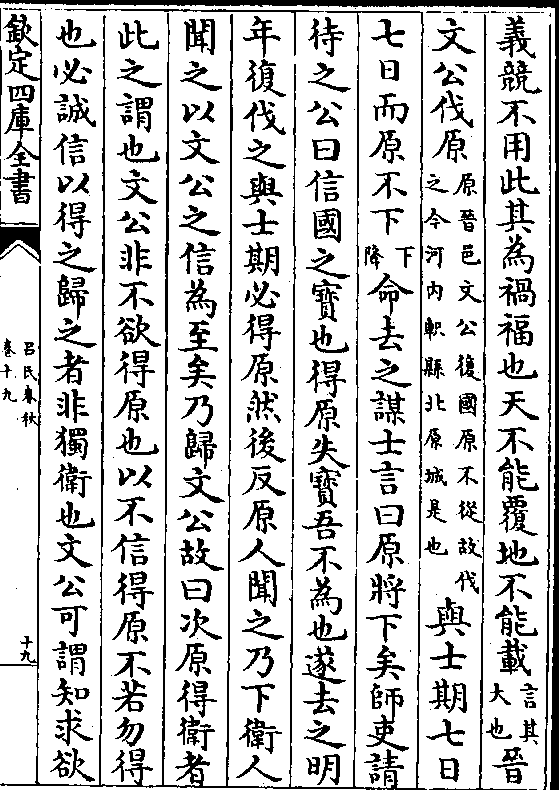 義競不用此其為禍福也天不能覆地不能載言其大也晉
文公伐原原晉邑文公復國原不從故伐之今河内軹縣北原城是也與士期七日
七日而原不下下降命去之謀士言曰原將下矣師吏請
待之公曰信國之寶也得原失寶吾不為也遂去之明
年復伐之與士期必得原然後反原人聞之乃下衛人
聞之以文公之信為至矣乃歸文公故曰次原得衛者
此之謂也文公非不欲得原也以不信得原不若勿得
也必誠信以得之歸之者非獨衛也文公可謂知求欲
欽定四庫全書
吕氏春秋
卷十九
十九